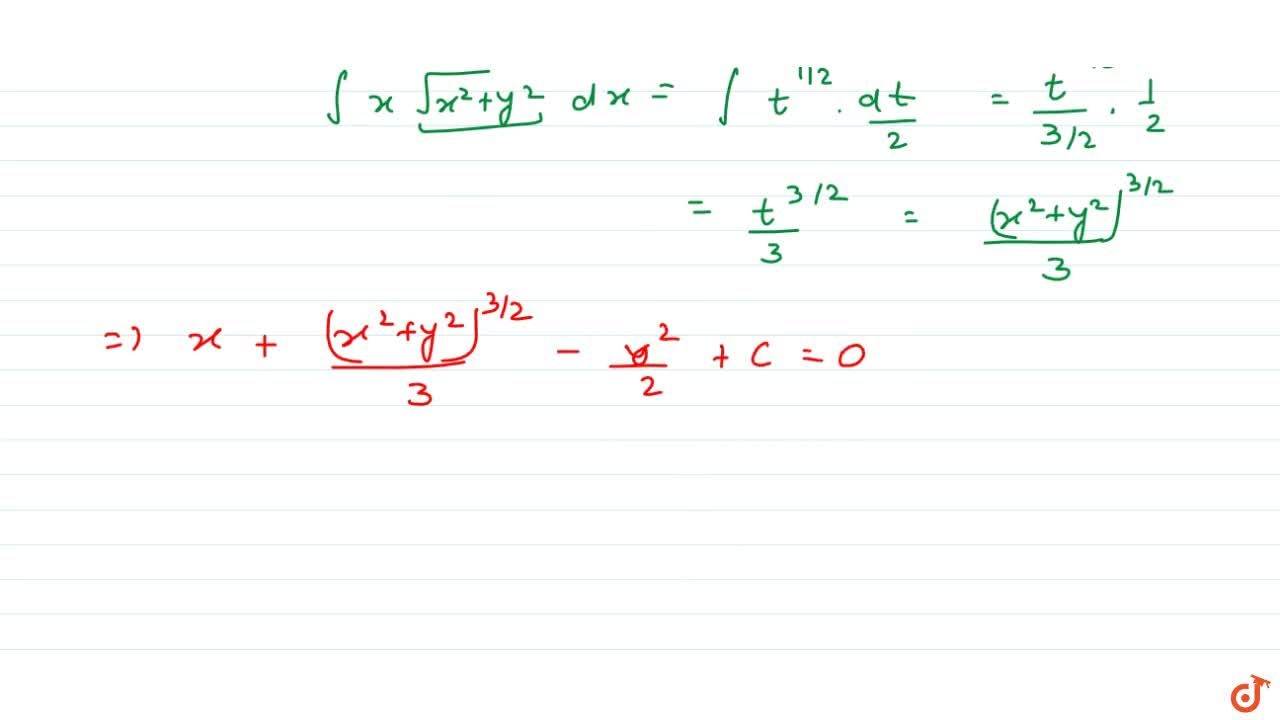 ∫ x √x²+y² dx = ∫ t^1/2 . dt/2 = t/3/2 . 1/2
= t^3/2/3 = (x²+y²)^3/2/3
=> x + (x²+y²)^3/2/3 - y²/2 + C = 0